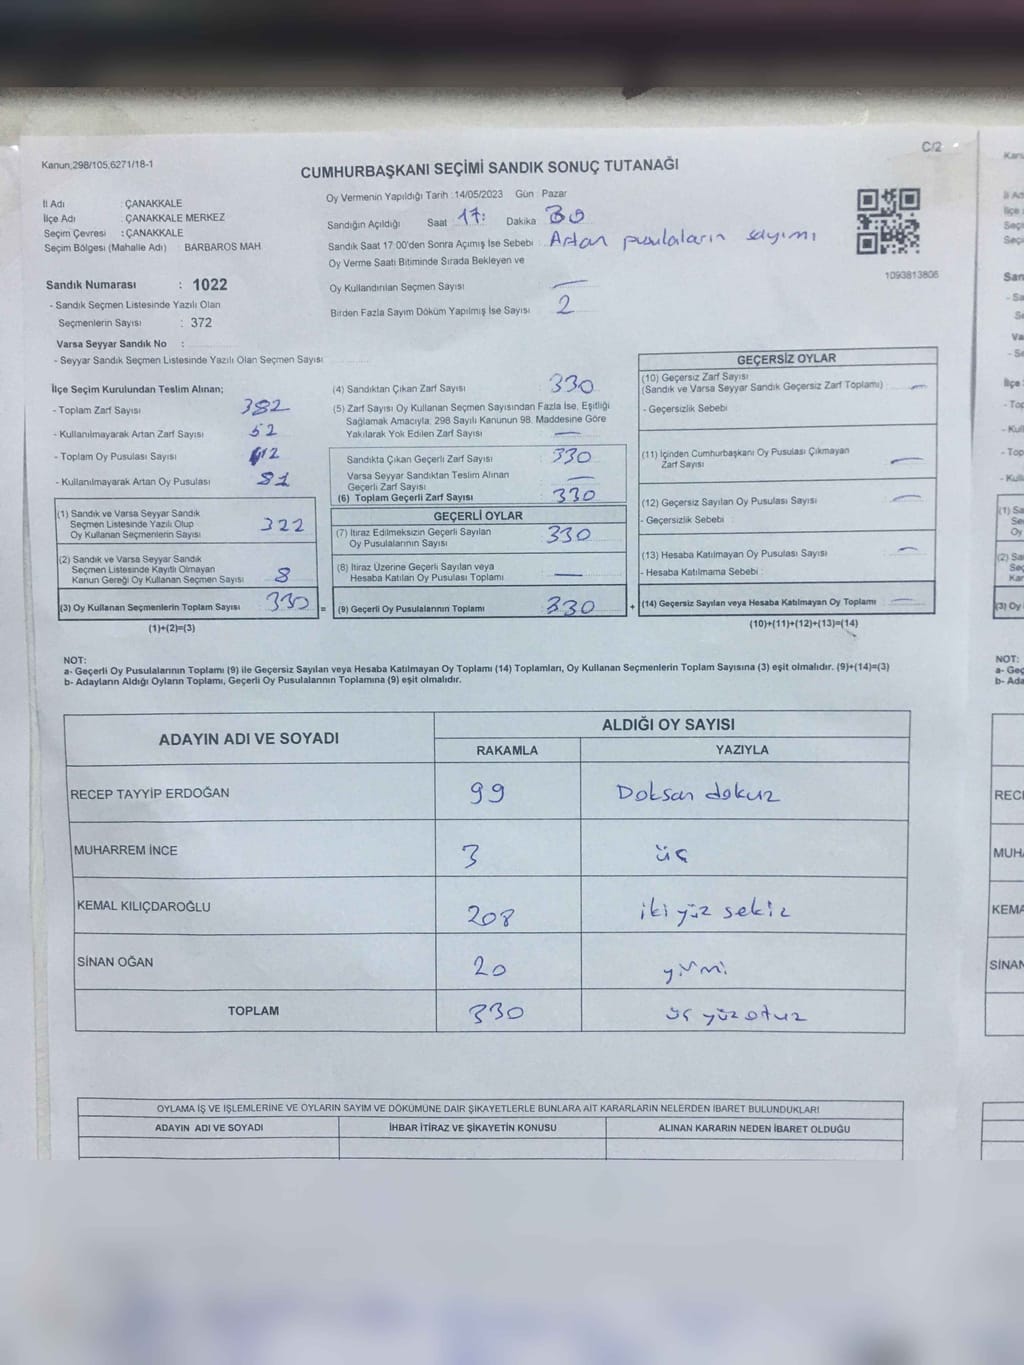 C/2
Kanun;298/105,6271/18-1
CUMHURBAŞKANI SEÇİMİ SANDIK SONUÇ TUTANAĞI
İl Adı : ÇANAKKALE
İlçe Adı : ÇANAKKALE MERKEZ
Seçim Çevresi : ÇANAKKALE
Seçim Bölgesi (Mahalle Adı) : BARBAROS MAH.
Oy Vermenin Yapıldığı Tarih :14/05/2023 Gün : Pazar
Sandığın Açıldığı Saat 17: Dakika 30
Sandık Saat 17:00'den Sonra Açımış İse Sebebi : Artan pusulaların sayımı
Oy Verme Saati Bitiminde Sırada Bekleyen ve
Oy Kullandırılan Seçmen Sayısı —
Birden Fazla Sayım Döküm Yapılmış İse Sayısı 2
1093813806
Sandık Numarası : 1022
- Sandık Seçmen Listesinde Yazılı Olan
Seçmenlerin Sayısı : 372
Varsa Seyyar Sandık No :
- Seyyar Sandık Seçmen Listesinde Yazılı Olan Seçmen Sayısı
İlçe Seçim Kurulundan Teslim Alınan;
- Toplam Zarf Sayısı 382
- Kullanılmayarak Artan Zarf Sayısı 52
- Toplam Oy Pusulası Sayısı 412
- Kullanılmayarak Artan Oy Pusulası 81
(1) Sandık ve Varsa Seyyar Sandık
Seçmen Listesinde Yazılı Olup
Oy Kullanan Seçmenlerin Sayısı 322
(2) Sandık ve Varsa Seyyar Sandık
Seçmen Listesinde Kayıtlı Olmayan
Kanun Gereği Oy Kullanan Seçmen Sayısı 8
(3) Oy Kullanan Seçmenlerin Toplam Sayısı 330 =
(1)+(2)=(3)
(4) Sandıktan Çıkan Zarf Sayısı 330
(5) Zarf Sayısı Oy Kullanan Seçmen Sayısından Fazla İse, Eşitliği
Sağlamak Amacıyla; 298 Sayılı Kanunun 98. Maddesine Göre
Yakılarak Yok Edilen Zarf Sayısı —
Sandıkta Çıkan Geçerli Zarf Sayısı 330
Varsa Seyyar Sandıktan Teslim Alınan
Geçerli Zarf Sayısı —
(6) Toplam Geçerli Zarf Sayısı 330
GEÇERLİ OYLAR
(7) İtiraz Edilmeksizin Geçerli Sayılan
Oy Pusulalarının Sayısı 330
(8) İtiraz Üzerine Geçerli Sayılan veya
Hesaba Katılan Oy Pusulası Toplamı —
(9) Geçerli Oy Pusulalarının Toplamı 330 +
GEÇERSİZ OYLAR
(10) Geçersiz Zarf Sayısı
(Sandık ve Varsa Seyyar Sandık Geçersiz Zarf Toplamı) —
- Geçersizlik Sebebi :
(11) İçinden Cumhurbaşkanı Oy Pusulası Çıkmayan
Zarf Sayısı —
(12) Geçersiz Sayılan Oy Pusulası Sayısı —
- Geçersizlik Sebebi :
(13) Hesaba Katılmayan Oy Pusulası Sayısı —
- Hesaba Katılmama Sebebi :
(14) Geçersiz Sayılan veya Hesaba Katılmayan Oy Toplamı —
(10)+(11)+(12)+(13)=(14)
NOT:
a- Geçerli Oy Pusulalarının Toplamı (9) ile Geçersiz Sayılan veya Hesaba Katılmayan Oy Toplamı (14) Toplamları, Oy Kullanan Seçmenlerin Toplam Sayısına (3) eşit olmalıdır. (9)+(14)=(3)
b- Adayların Aldığı Oyların Toplamı, Geçerli Oy Pusulalarının Toplamına (9) eşit olmalıdır.
ADAYIN ADI VE SOYADI ALDIĞI OY SAYISI
RAKAMLA YAZIYLA
RECEP TAYYİP ERDOĞAN 99 Doksan dokuz
MUHARREM İNCE 3 üç
KEMAL KILIÇDAROĞLU 208 iki yüz sekiz
SİNAN OĞAN 20 yirmi
TOPLAM 330 üç yüz otuz
OYLAMA İŞ VE İŞLEMLERİNE VE OYLARIN SAYIM VE DÖKÜMÜNE DAİR ŞİKAYETLERLE BUNLARA AİT KARARLARIN NELERDEN İBARET BULUNDUKLARI
ADAYIN ADI VE SOYADI İHBAR İTİRAZ VE ŞİKAYETİN KONUSU ALINAN KARARIN NEDEN İBARET OLDUĞU